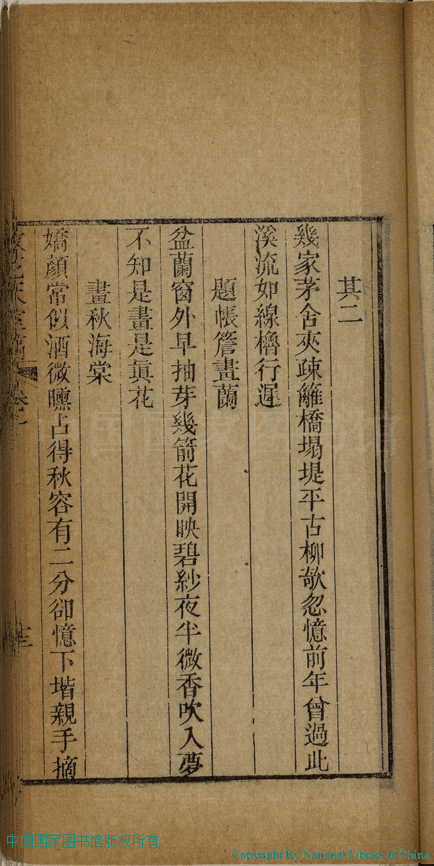 其二
幾家茅舍夾疎籬橋塌堤平古柳欹忽憶前年曾過此
溪流如線櫓行遲
題帳簷畫蘭
盆蘭窗外早抽芽幾箭花開映碧紗夜半微香吹入夢
不知是畫是眞花
畫秋海棠
嬌顔常似酒微醺占得秋容有二分卻憶下堦親手摘
中国国家图书馆版权所有
Copyright By National Library of China